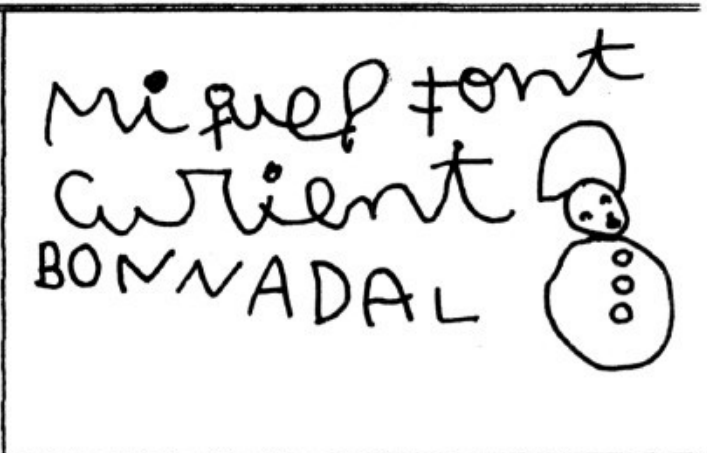 Miquel Font
Curient
BONNADAL